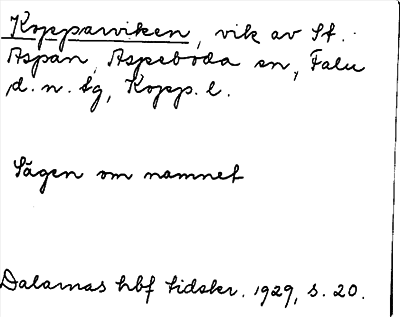 Kopparviken, vik av St.
Aspan, Aspeboda sn, Falu
d. n. tg, Kopp. l.
Sägen om namnet
Dalarnas hbf tidskr. 1929, s. 20.